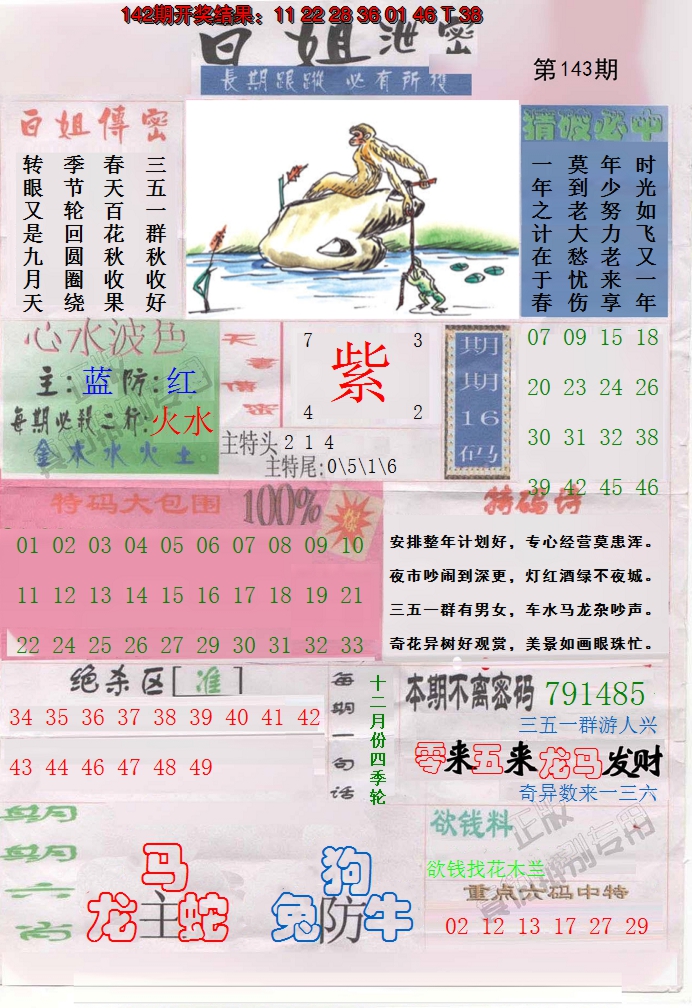 142期开奖结果：11 22 28 36 01 46 T 38
白姐泄密
第143期
長期跟蹤 必有所獲
白姐傳密
三五一群秋收好
春天百花秋收果
季节轮回圆圈绕
转眼又是九月天
猜波必中
时光如飞又一年
年少努力老来享
莫到老大愁忧伤
一年之计在于春
心水波色
主:蓝防:红
每期必殺二行:火水
金木水火土
7 3
紫
4 2
主特头214
主特尾:0\5\1\6
期期16码
07 09 15 18
20 23 24 26
30 31 32 38
39 42 45 46
特码大包围 100%
01 02 03 04 05 06 07 08 09 10
11 12 13 14 15 16 17 18 19 21
22 24 25 26 27 29 30 31 32 33
特码诗
安排整年计划好，专心经营莫患浑。
夜市吵闹到深更，灯红酒绿不夜城。
三五一群有男女，车水马龙杂吵声。
奇花异树好观赏，美景如画眼珠忙。
绝杀区[准]
34 35 36 37 38 39 40 41 42
43 44 46 47 48 49
每期一句话
十二月份四季轮
本期不离密码 791485
三五一群游人兴
零来五来龙马发财
奇异数来一三六
每期六肖
马
龙主蛇
狗
兔防牛
欲钱料
欲钱找花木兰
重点六码中特
02 12 13 17 27 29